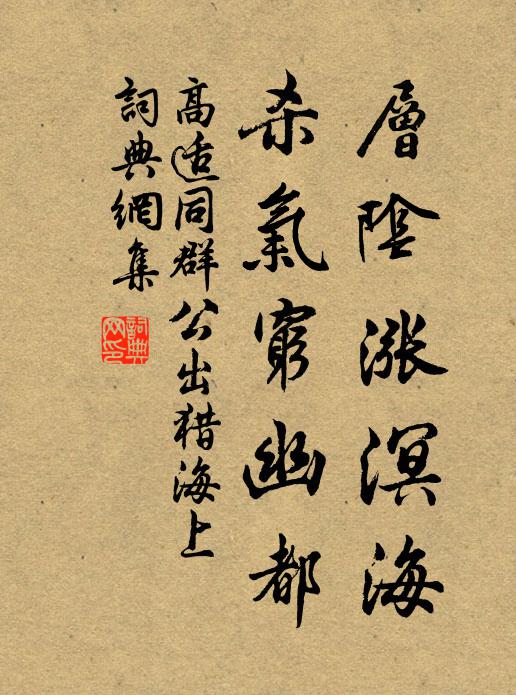 層陰漲溟海
杀氣窮幽都
高适同群公出猎海上
詞典網集
詞典网印